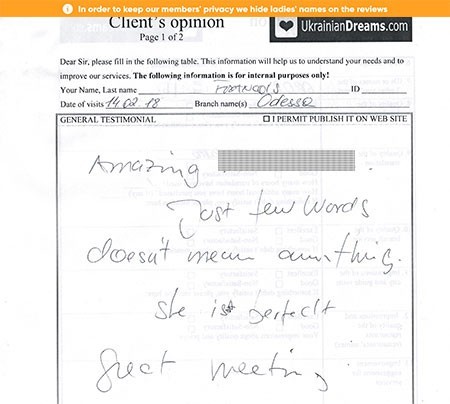 In order to keep our members' privacy we hide ladies' names on the reviews
Client's opinion
UkrainianDreams.com
Page 1 of 2
Dear Sir, please fill in the following table. This information will help us to understand your needs and to
improve our services. The following information is for internal purposes only!
Your Name, Last name ID
Date of visits 14 02 18 Branch name(s) Odessa
GENERAL TESTIMONIAL ☐ I PERMIT PUBLISH IT ON WEB SITE
Amazing
Just few words
doesn't mean anithing.
she is perfect
Great meeting